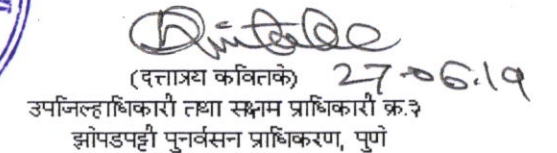 (दत्तात्रय कवितके) 27-06.19
उपजिल्हाधिकारी तथा सक्षम प्राधिकारी क्र.३
झोपडपट्टी पुनर्वसन प्राधिकरण, पुणे